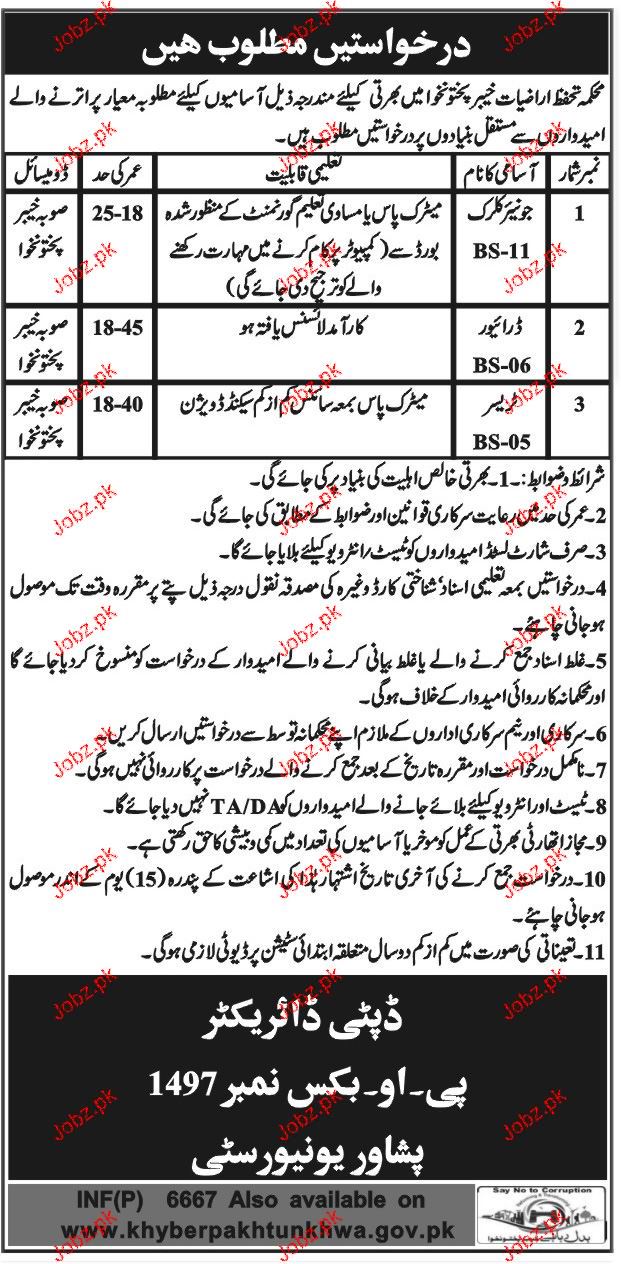 درخواستیں مطلوب ھیں
محکمہ تحفظ اراضیات خیبر پختونخوا میں بھرتی کیلئے مندرجہ ذیل آسامیوں کیلئے مطلوبہ معیار پر اترنے والے
امیدواروں سے مستقل بنیادوں پر درخواستیں مطلوب ہیں۔
نمبر شمار آسامی کا نام تعلیمی قابلیت عمر کی حد ڈومیسائل
1 جونیئر کلرک میٹرک پاس یا مساوی تعلیم گورنمنٹ کے منظور شدہ 25-18 صوبہ خیبر
BS-11 بورڈ سے (کمپیوٹر پر کام کرنے میں مہارت رکھنے پختونخوا
والے کو ترجیح دی جائے گی)
2 ڈرائیور کار آمد لائسنس یافتہ ہو 18-45 صوبہ خیبر
BS-06 پختونخوا
3 ٹریسر میٹرک پاس بمعہ سائنس کم از کم سیکنڈ ڈویژن 18-40 صوبہ خیبر
BS-05 پختونخوا
شرائط و ضوابط:۔ 1۔ بھرتی خالص اہلیت کی بنیاد پر کی جائے گی۔
2۔ عمر کی حد میں رعایت سرکاری قوانین اور ضوابط کے مطابق کی جائے گی۔
3۔ صرف شارٹ لسٹڈ امیدواروں کو ٹیسٹ/انٹرویو کیلئے بلایا جائے گا۔
4۔ درخواستیں بمعہ تعلیمی اسناد، شناختی کارڈ وغیرہ کی مصدقہ نقول درجہ ذیل پتے پر مقررہ وقت تک موصول
ہو جانی چاہئے۔
5۔ غلط اسناد جمع کرنے والے یا غلط بیانی کرنے والے امیدوار کے درخواست کو منسوخ کر دیا جائے گا
اور محکمانہ کارروائی امیدوار کے خلاف ہوگی۔
6۔ سرکاری اور نیم سرکاری اداروں کے ملازم اپنے محکمانہ توسط سے درخواستیں ارسال کریں۔
7۔ نامکمل درخواست اور مقررہ تاریخ کے بعد جمع کرنے والے درخواست پر کارروائی نہیں ہوگی۔
8۔ ٹیسٹ اور انٹرویو کیلئے بلائے جانے والے امیدواروں کو TA/DA نہیں دیا جائے گا۔
9۔ مجاز اتھارٹی بھرتی کے عمل کو موخر یا آسامیوں کی تعداد میں کمی و بیشی کا حق رکھتی ہے۔
10۔ درخواست جمع کرنے کی آخری تاریخ اشتہار ہذا کی اشاعت کے پندرہ (15) یوم کے اندر موصول
ہو جانی چاہئے۔
11۔ تعیناتی کی صورت میں کم از کم دو سال متعلقہ ابتدائی سٹیشن پر ڈیوٹی لازمی ہوگی۔
ڈپٹی ڈائریکٹر
پی۔او۔بکس نمبر 1497
پشاور یونیورسٹی
INF(P) 6667 Also available on
www.khyberpakhtunkhwa.gov.pk
Say No to Corruption
Jobz.pk